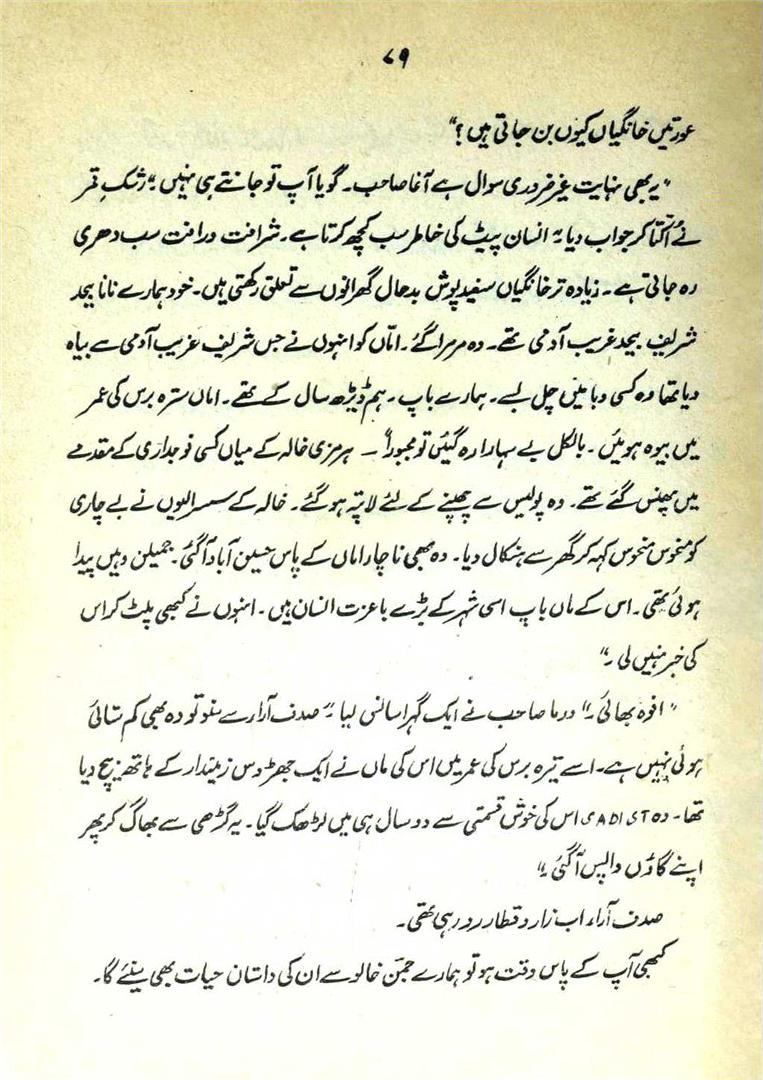 ۷۹
عورتیں خانگیاں کیوں بن جاتی ہیں؟“
”یہ بھی نہایت غیر ضروری سوال ہے آغا صاحب۔ گویا آپ تو جانتے ہی نہیں۔“ رشکِ قمر
نے اُکتا کر جواب دیا۔ ”انسان پیٹ کی خاطر سب کچھ کرتا ہے۔ شرافت ورافت سب دھری
رہ جاتی ہے۔ زیادہ تر خانگیاں سفید پوش بدحال گھرانوں سے تعلق رکھتی ہیں۔ خود ہمارے نانا بیحد
شریف بیحد غریب آدمی تھے۔ وہ مر مرا گئے۔ امّاں کو انہوں نے جس شریف غریب آدمی سے بیاہ
دیا تھا وہ کسی وبا میں چل بسے۔ ہمارے باپ۔ ہم ڈیڑھ سال کے تھے۔ اماں سترہ برس کی عمر
میں بیوہ ہوئیں۔ بالکل بے سہارا رہ گئیں تو مجبوراً — ہرمزی خالہ کے میاں کسی فوجداری کے مقدمے
میں پھنس گئے تھے۔ وہ پولیس سے چھپنے کے لئے لاپتہ ہو گئے۔ خالہ کے سسرالیوں نے بے چاری
کو منحوس منحوس کہہ کر گھر سے نکال دیا۔ وہ بھی ناچار اماں کے پاس حسین آباد آ گئی۔ جمیلن وہیں پیدا
ہوئی تھی۔ اس کے ماں باپ اسی شہر کے بڑے باعزت انسان ہیں۔ انہوں نے کبھی پلٹ کر اس
کی خبر نہیں لی۔“
”افوہ بھائی۔“ ورما صاحب نے ایک گہرا سانس لیا۔ ”صدف آرا سے سنو تو وہ بھی کم ستائی
ہوئی نہیں ہے۔ اسے تیرہ برس کی عمر میں اس کی ماں نے ایک جھڑوس زمیندار کے ہاتھ بیچ دیا
تھا۔ وہ SADIST اس کی خوش قسمتی سے دو سال ہی میں لڑھک گیا۔ یہ گڑھی سے بھاگ کر پھر
اپنے گاؤں واپس آ گئی۔“
صدف آراء اب زار و قطار رو رہی تھی۔
کبھی آپ کے پاس وقت ہو تو ہمارے جمّن خالو سے ان کی داستان حیات بھی سنئے گا۔